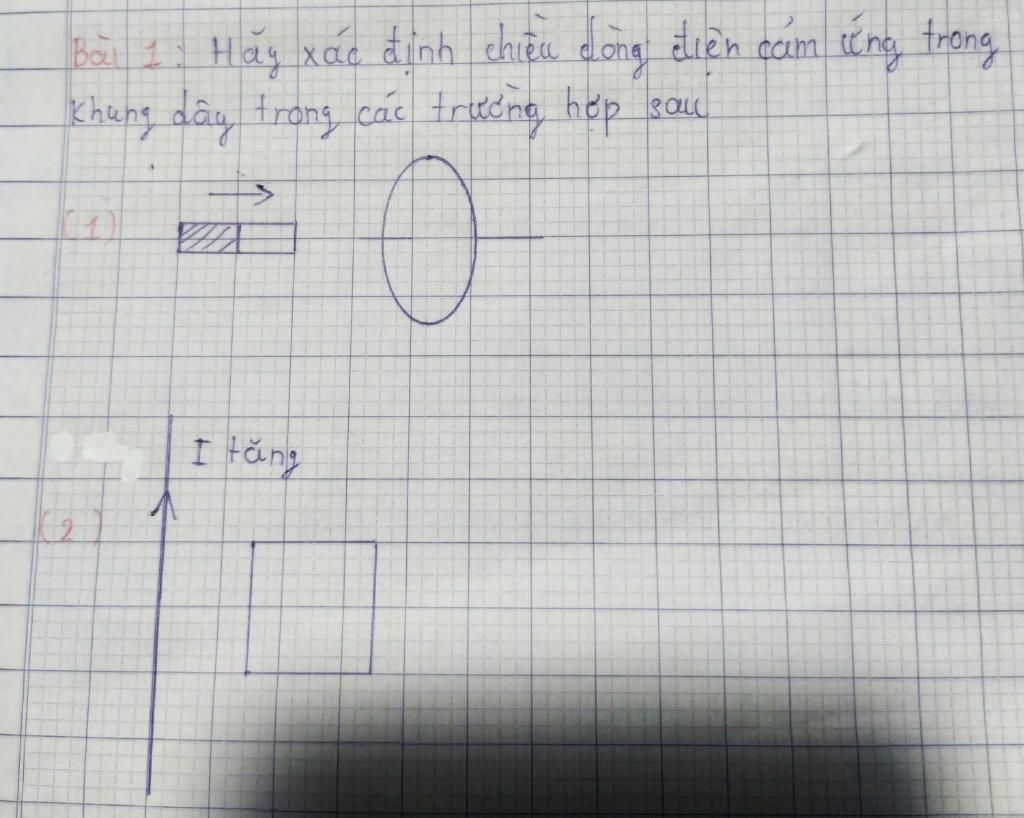 Bài 1: Hãy xác định chiều dòng điện cảm ứng trong
khung dây trong các trường hợp sau
(1)
I tăng
(2)